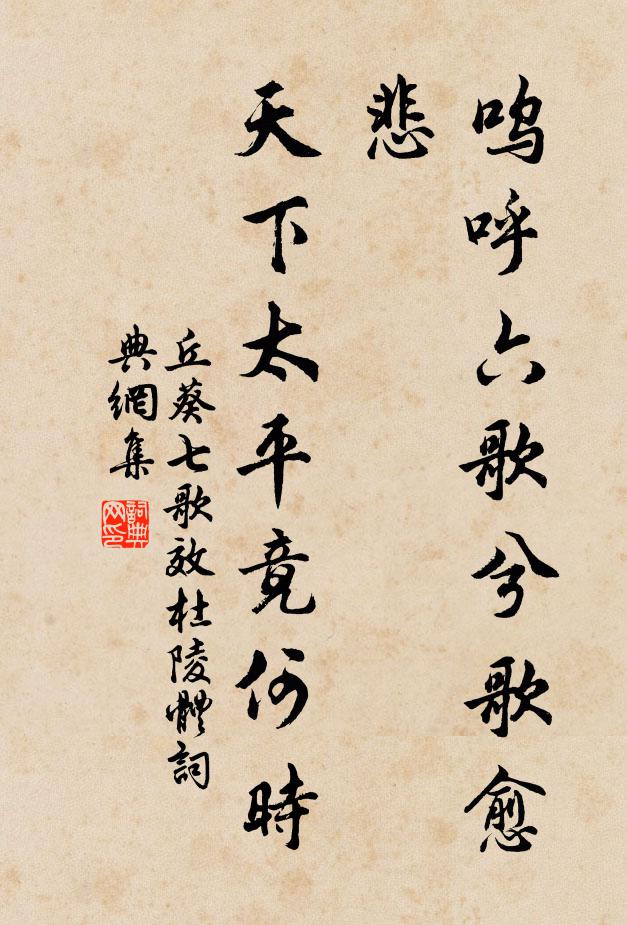 嗚呼六歌兮歌愈
悲
天下太平竟何時
丘葵七歌效杜陵體詞
典網集
詞典
网印